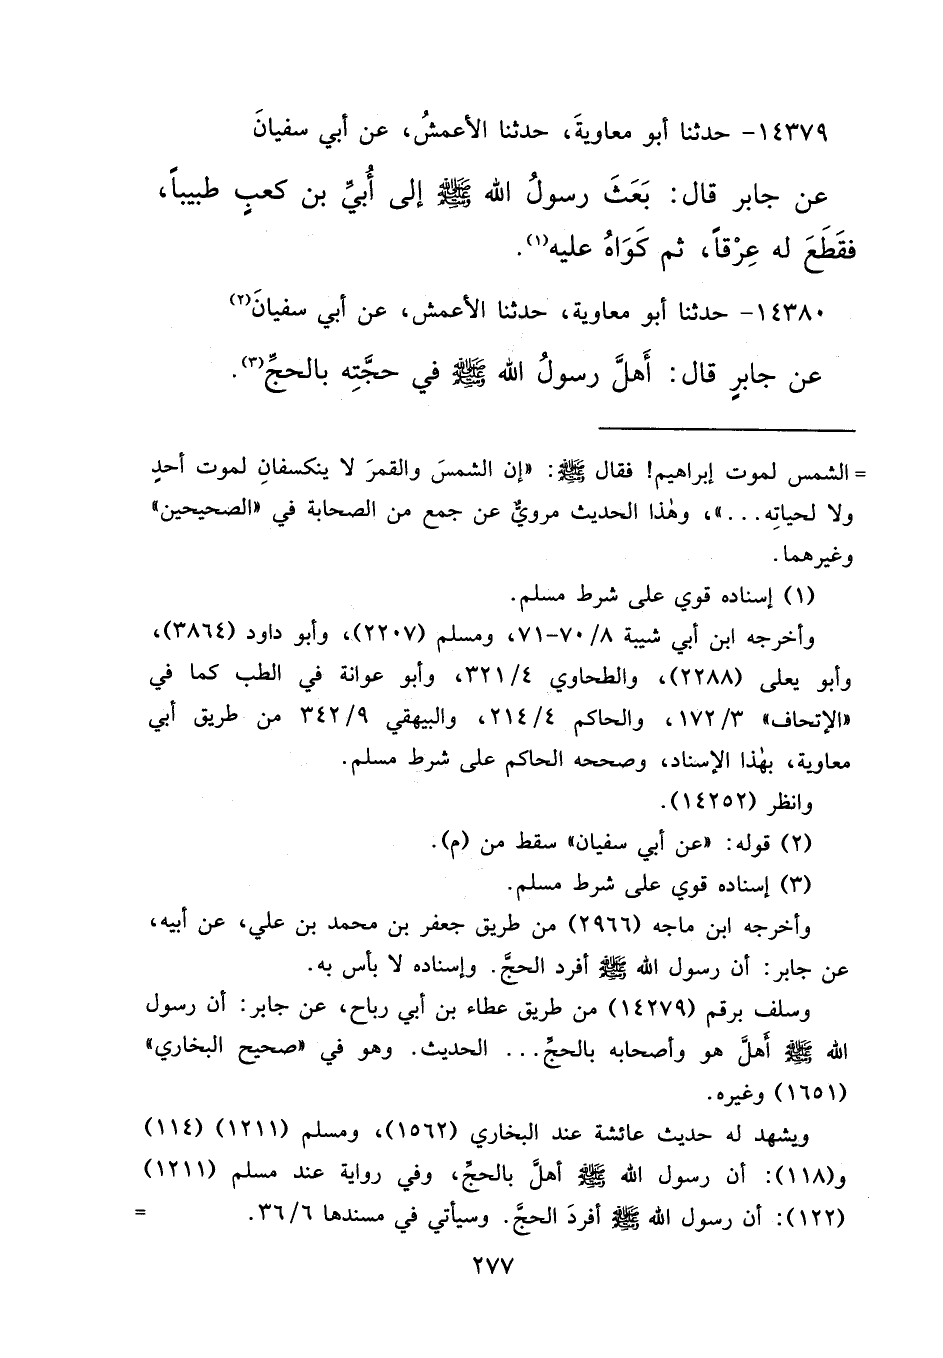 ١٤٣٧٩- حدثنا أبو معاويةَ، حدثنا الأعمشُ، عن أبي سفيانَ
عن جابر قال: بَعَثَ رسولُ الله ﷺ إلى أُبيِّ بن كعبٍ طبيباً،
فقَطَعَ له عِرْقاً، ثم كَوَاهُ عليه(١).
١٤٣٨٠- حدثنا أبو معاوية، حدثنا الأعمش، عن أبي سفيانَ(٢)
عن جابرٍ قال: أَهلَّ رسولُ الله ﷺ في حجَّتِه بالحجِّ(٣).
= الشمس لموت إبراهيم! فقال ﷺ: «إن الشمسَ والقمرَ لا ينكسفانِ لموت أحدٍ
ولا لحياتِه...»، وهٰذا الحديث مرويٌّ عن جمع من الصحابة في «الصحيحين»
وغيرهما.
(١) إسناده قوي على شرط مسلم.
وأخرجه ابن أبي شيبة ٨/ ٧٠-٧١، ومسلم (٢٢٠٧)، وأبو داود (٣٨٦٤)،
وأبو يعلى (٢٢٨٨)، والطحاوي ٤/ ٣٢١، وأبو عوانة في الطب كما في
«الإتحاف» ٣/ ١٧٢، والحاكم ٤/ ٢١٤، والبيهقي ٩/ ٣٤٢ من طريق أبي
معاوية، بهٰذا الإسناد، وصححه الحاكم على شرط مسلم.
وانظر (١٤٢٥٢).
(٢) قوله: «عن أبي سفيان» سقط من (م).
(٣) إسناده قوي على شرط مسلم.
وأخرجه ابن ماجه (٢٩٦٦) من طريق جعفر بن محمد بن علي، عن أبيه،
عن جابر: أن رسول الله ﷺ أفرد الحجَّ. وإسناده لا بأس به.
وسلف برقم (١٤٢٧٩) من طريق عطاء بن أبي رباح، عن جابر: أن رسول
الله ﷺ أَهلَّ هو وأصحابه بالحجِّ... الحديث. وهو في «صحيح البخاري»
(١٦٥١) وغيره.
ويشهد له حديث عائشة عند البخاري (١٥٦٢)، ومسلم (١٢١١) (١١٤)
و(١١٨): أن رسول الله ﷺ أهلَّ بالحجِّ، وفي رواية عند مسلم (١٢١١)
(١٢٢): أن رسول الله ﷺ أفردَ الحجَّ. وسيأتي في مسندها ٦/ ٣٦. =
٢٧٧